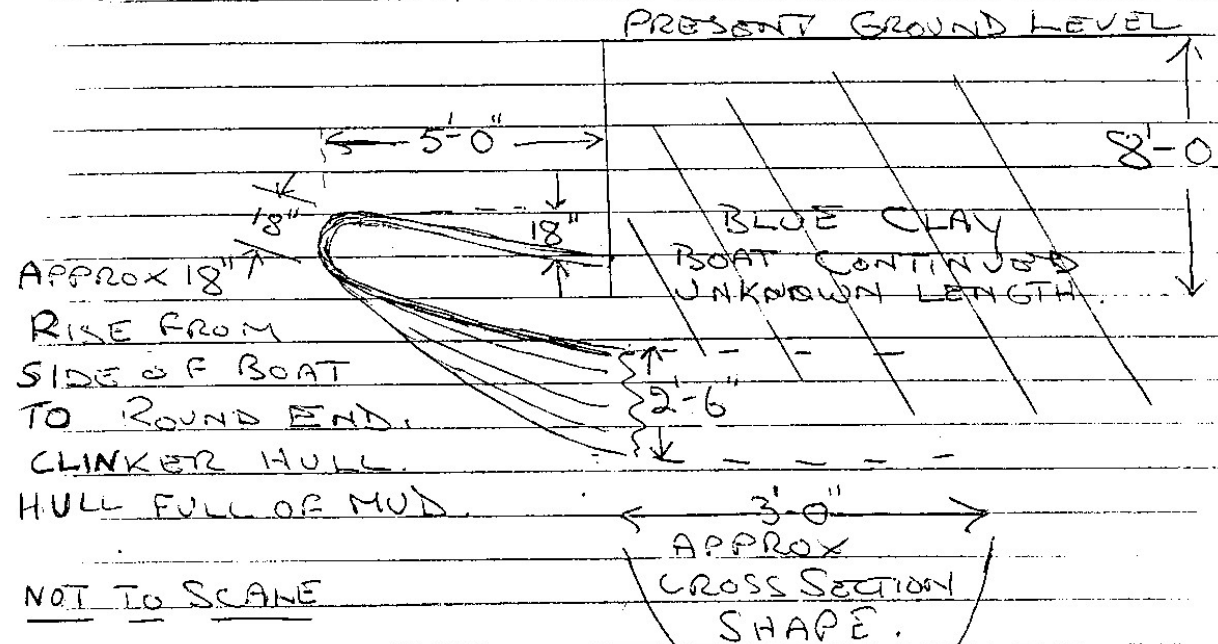 PRESENT GROUND LEVEL
5'-0"
8'-0
18"
18"
BLUE CLAY
BOAT CONTINUED
UNKNOWN LENGTH.
APPROX 18"
RISE FROM
SIDE OF BOAT
TO ROUND END.
CLINKER HULL.
HULL FULL OF MUD.
2'-6"
3'-0"
APPROX
CROSS SECTION
SHAPE.
NOT TO SCALE